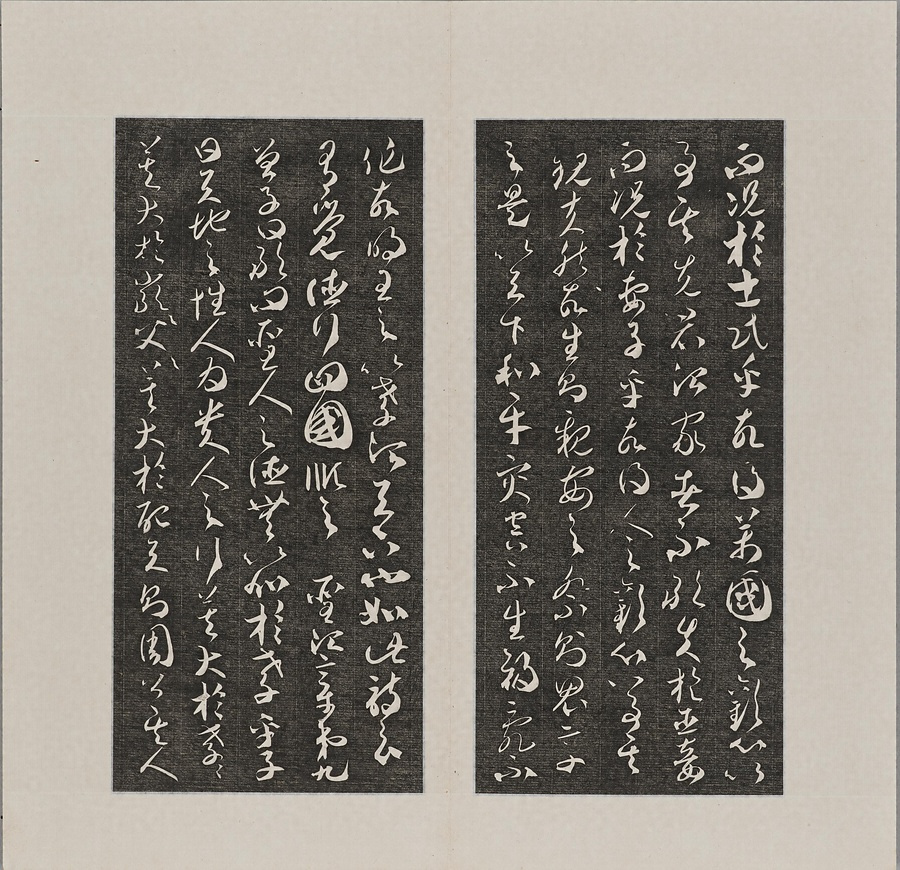 而況於士民乎故得萬國之歡心以
事其先君治家者不敢失於臣妾
而況於妻子乎故得人之歡心以事其
親夫然故生則親安之祭則鬼享
之是以天下和平災害不生禍亂不
作故明王之以孝治天下也如此詩云
有覺德行四國順之 聖治章第九
曾子曰敢問聖人之德無以加於孝乎子
曰天地之性人為貴人之行莫大於孝〻
莫大於嚴〻父〻莫大於配天則周公其人